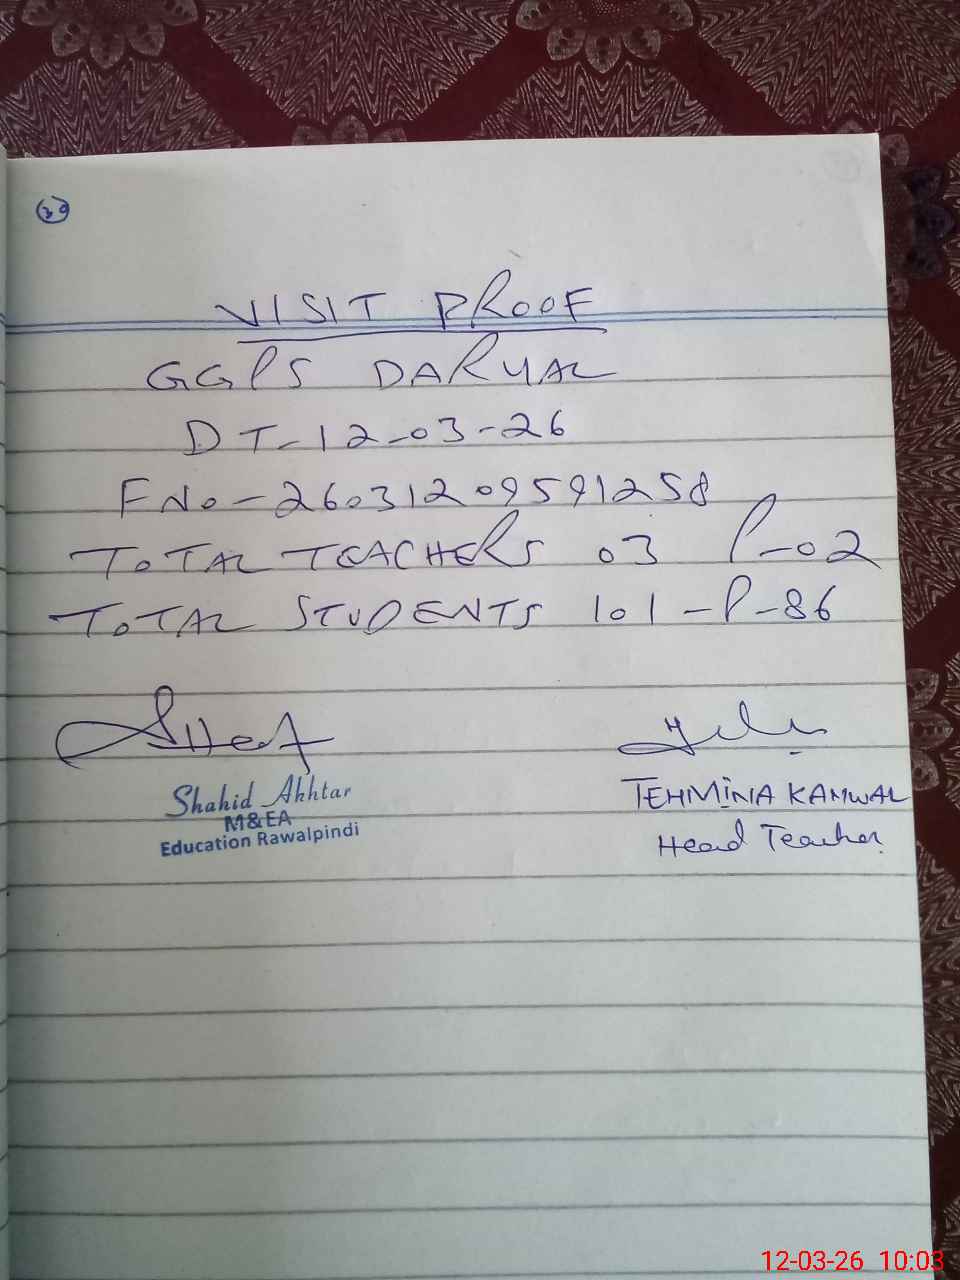 39
VISIT PROOF
GGPS DARYAL
DT-12-03-26
F No-26031209591258
TOTAL TEACHERS 03 P-02
TOTAL STUDENTS 101-P-86
Shahid Akhtar
M&EA
Education Rawalpindi
TEHMINA KANWAL
Head Teacher
12-03-26 10:03